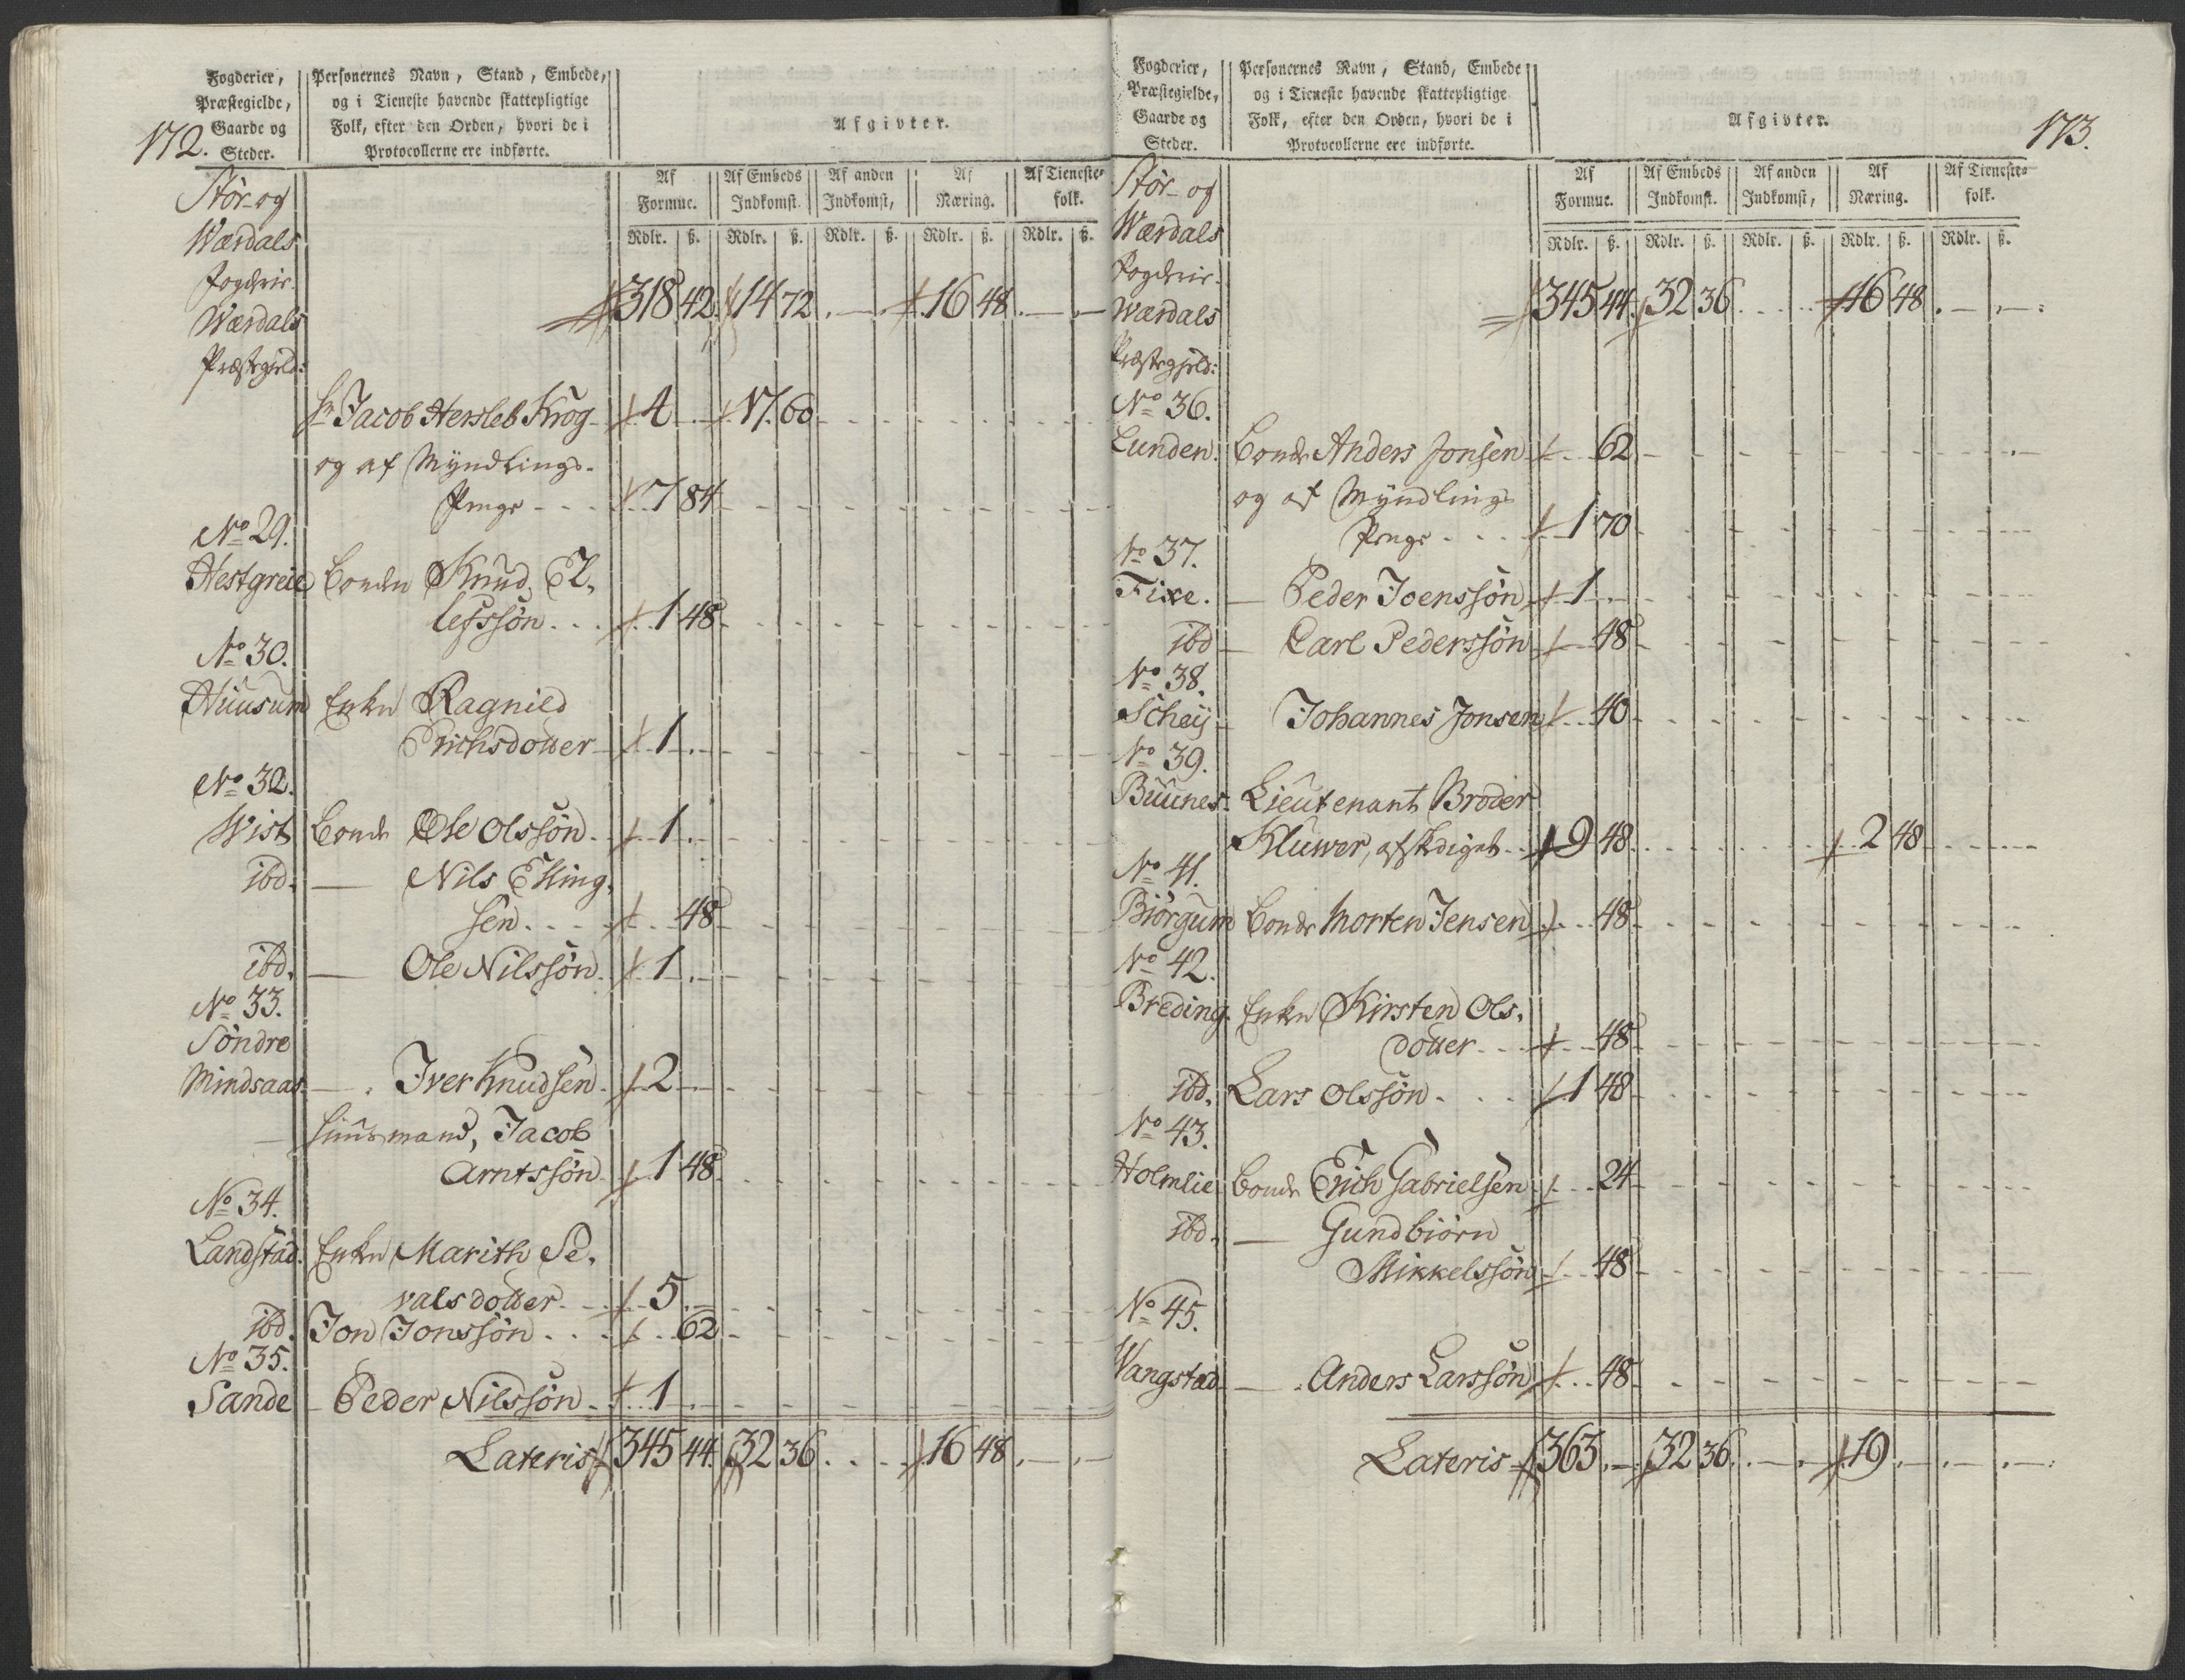 172.
Fogderier,
Præstegielde,
Gaarde og
Steder.
Personernes Navn, Stand, Embede,
og i Tieneste havende skattepligtige
Folk, efter den Orden, hvori de i
Protocollerne ere indførte.
Afgivter.
Af Formue. Af Embeds Indkomst. Af anden Indkomst, Af Næring. Af Tieneste-folk.
Rdlr. ß. Rdlr. ß. Rdlr. ß. Rdlr. ß. Rdlr. ß.
Stør- og
Wærdals
Fogderie.
Wærdals
Præstegield:
318 42. 14 72. . — . 16 48. — . —
Hr Jacob Hersleb Krog 4 . — 17. 60
og af Myndlings-
Penge - - - 7 84
No 29.
Hestgreie Bonden Knud El-
lefssøn . . . 1 48
No 30.
Huusum Enken Ragnild
Erichsdotter 1 . —
No 32.
Wist Bonde Ole Olssøn 1 . —
ibd. — Nils Elling-
sen . . . 48
ibd. — Ole Nilssøn 1 . —
No 33.
Søndre
Mindsaas — Iver Knudsen 2 . —
— Huusmand, Jacob
Arntssøn 1 48
No 34.
Landstad. Enken Marith Si-
valsdotter 5 . —
ibd. Jon Jonssøn . . . 62
No 35.
Sande — Peder Nilssøn 1 . —
Lateris 345 44. 32 36 . . . . 16 48. — . —
173.
Fogderier,
Præstegielde,
Gaarde og
Steder.
Personernes Navn, Stand, Embede
og i Tieneste havende skattepligtige
Folk, efter den Orden, hvori de i
Protocollerne ere indførte.
Afgivter.
Af Formue. Af Embeds Indkomst. Af anden Indkomst, Af Næring. Af Tieneste-folk.
Rdlr. ß. Rdlr. ß. Rdlr. ß. Rdlr. ß. Rdlr. ß.
Stør- og
Wærdals
Fogderie.
Wærdals
Præstegjeld:
345 44. 32 36 . . . . 16 48. — . —
No 36.
Lunden. Bonde Anders Jonsen 62
og af Myndlings
Penge . . . 1 70
No 37.
Fixe. — Peder Joenssøn 1 . —
ibd — Carl Pederssøn 48
No 38.
Scheij — Johannes Jonsen 40
No 39.
Buunes. Lieutenant Broder
Kluwer, afskediget . . 9 48 2 48
No 41.
Biörgum Bonde Morten Jensen 48
No 42.
Breding. Enken Kirsten Ols-
dotter . . . 48
ibd. Lars Olssøn . . . 1 48
No 43.
Holmlie Bonde Erich Gabrielsen 24
ibd. — Gundbiørn
Mikkelssøn 48
No 45.
Wangstad — Anders Larssøn 48
Lateris 363. — 32 36. . — . 19. — . — . —